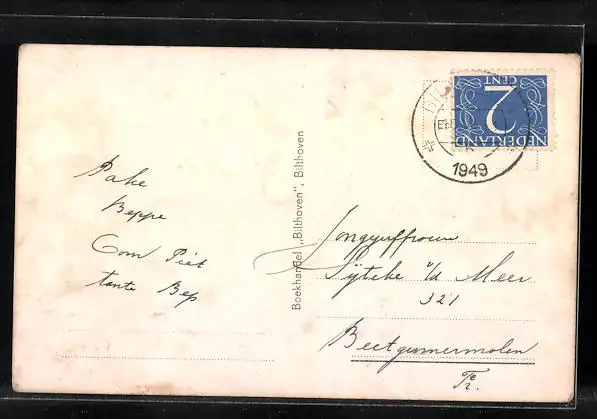 Pake
Beppe
Oom Piet
tante Bep
Boekhandel „Bilthoven", Bilthoven
2
CENT
NEDERLAND
1949
Jongejuffrouw
Sijtske v/d Meer
321
Beetgumermolen
Fr.